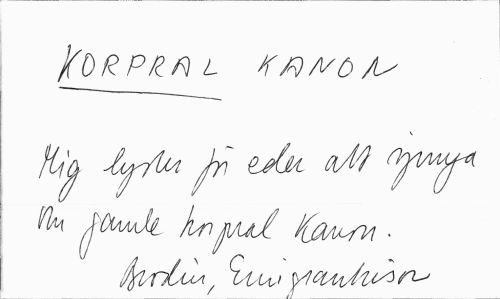 KORPRAL KANON
Mig lyster för eder att sjunga
Om gamle korpral Kanon.
Brodin, Emigrantvisor